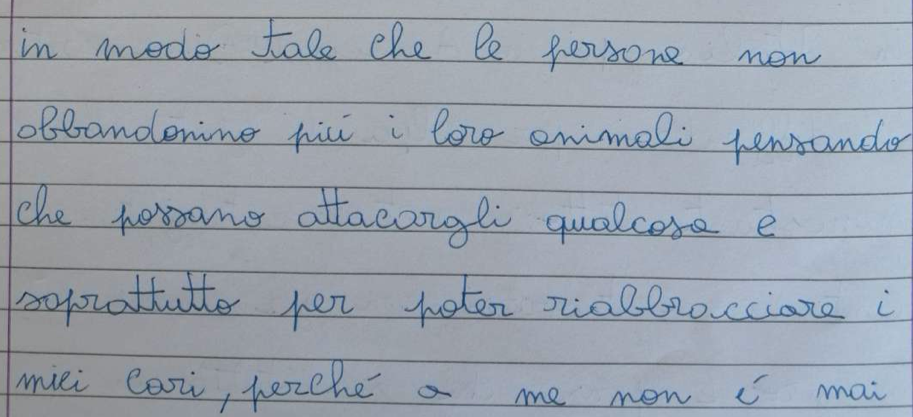 in modo tale che le persone non
abbandonino più i loro animali pensando
che possano attacargli qualcosa e
soprattutto per poter riabbracciare i
miei cari, perché a me non é mai